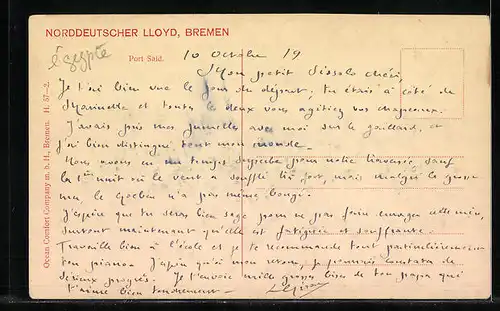 NORDDEUTSCHER LLOYD, BREMEN
égypte
Port Said.
10 octobre 19
Mon petit chéri,
Je t'ai bien vue le jour du départ; tu étais à côté de
Marinette et toutes les deux vous agitiez vos chapeaux.
J'avais pris mes jumelles avec moi sur le gaillard, et
j'ai bien distingué tout mon monde.
Nous avons eu un temps superbe pour notre traversée sauf
la 1ère nuit où le vent a soufflé très fort, mais malgré la grosse
mer, le Goeben n'a pas même bougé.
J'espère que tu seras bien sage pour ne pas faire enrager mère,
surtout maintenant qu'elle est fatiguée et souffrante.
Travaille bien à l'école et je te recommande tout particulièrement
ton piano. J'espère qu'à mon retour, je pourrais constater de
sérieux progrès. Je t'envoie mille grosses bises de ton papa qui
t'aime bien tendrement.
Ocean Comfort Company m. b. H., Bremen. H. 57—2.